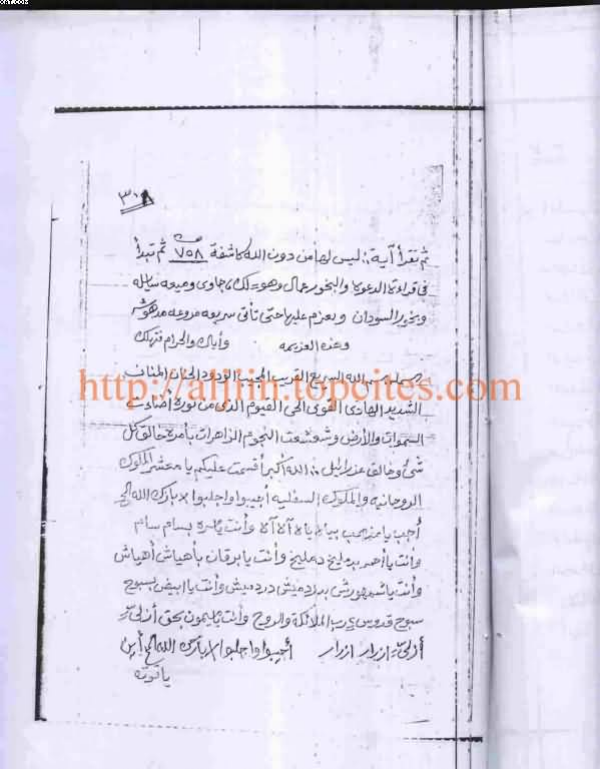 ٣٠
ثم تقرأ آية: ليس لها من دون الله كاشفة ٧٥٨ ثم تبدأ
في قراءة الدعوة والبخور عمال وهو لك، جاوى وميعه سايله
وبخور السودان وبعزم عليها حتى تأتى سريعه مروعه مدهوشه
وهذه العزيمه وأياك والحرام فتهلك
بسم الله السريع القريب المجيب الودود الحنان المنان
الشديد الهادى القوى الحى القيوم الذى من نوره اضاءت
السموات والأرض وشعشعت النجوم الزاهرات بأمره خالق كل
شئ وخالق عزرائيل :. الله أكبر أقسمت عليكم يا معشر الملوك
الروحانيه والملوك السفليه أجيبوا واجلبوا × بارك الله الخ
أجب يا مذهب بيالا يالا آلا آلا وأنت يا مره بسام سام
وأنت يا أحمر بدمليخ دمليخ وأنت يا برقان بأهياش أهياش
وأنت يا شمهورش بدردميش دردميش وأنت يا ابيض بسبوح
سبوح قدوس رب الملائكة والروح وأنت يا ميمون بحق أزلىّ
أزلىّ ازرار ازرار أجيبوا واجلبوا × بارك الله الخ أين
ياقوته
http://alljin.topcites.com